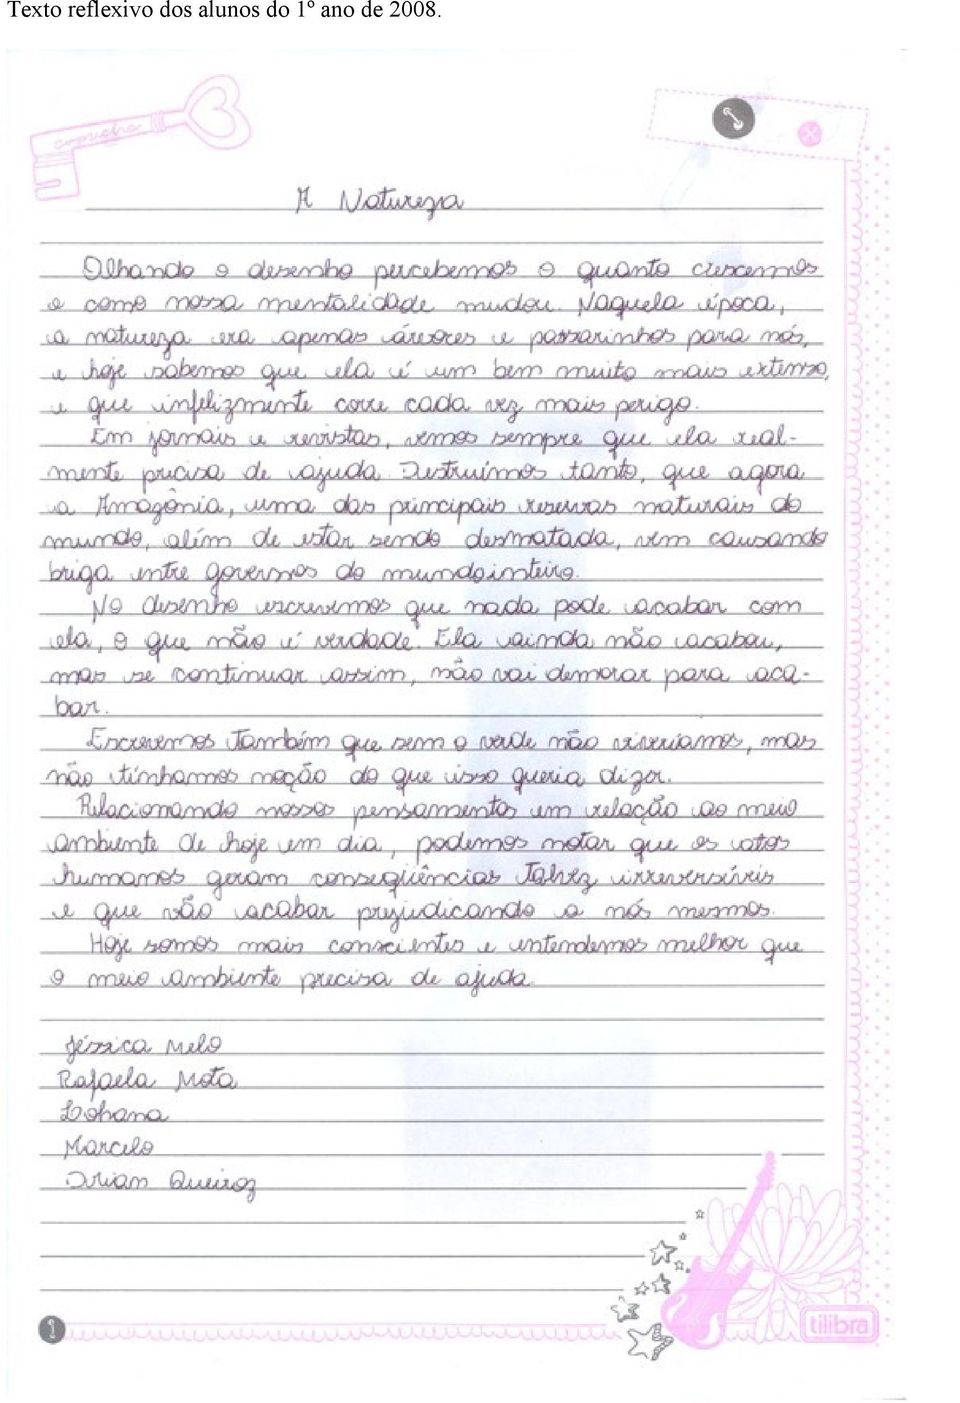 Texto reflexivo dos alunos do 1º ano de 2008.
capricho
A Natureza
Olhando o desenho percebemos o quanto crescemos
e como nossa mentalidade mudou. Naquela época,
a natureza era apenas árvores e passarinhos para nós,
e hoje sabemos que ela é um bem muito mais extenso,
e que infelizmente corre cada vez mais perigo.
Em jornais e revistas, vemos sempre que ela real-
mente precisa de ajuda. Destruímos tanto, que agora
a Amazônia, uma das principais reservas naturais do
mundo, além de estar sendo desmatada, vem causando
briga entre governos do mundointeiro.
No desenho escrevemos que nada pode acabar com
ela, o que não é verdade. Ela ainda não acabou,
mas se continuar assim, não vai demorar para aca-
bar.
Escrevemos também que sem o verde não viveriamos, mas
não tínhamos noção do que isso queria dizer.
Relacionando nossos pensamentos em relação ao meio
ambiente de hoje em dia, podemos notar que os atos
humanos geram conseqüências talvez irreversíveis
e que vão acabar prejudicando a nós mesmos.
Hoje somos mais conscientes e entendemos melhor que
o meio ambiente precisa de ajuda.
Jéssica Melo
Rafaela Mota
Lohana
Marcelo
Queiroz
1
tilibra